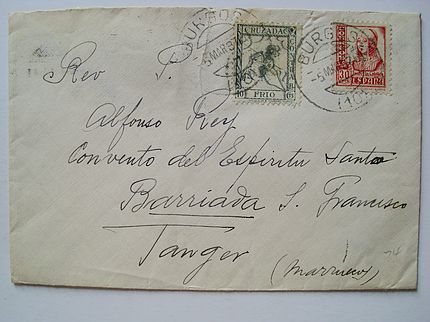 BURGOS
5 MAR 3
CRUZADA
FRIO
10
BURGOS
-5 MA
30
ESPAÑA
Rev P.
Alfonso Rey
Convento del Espiritu Santo
Barriada S. Francisco
Tanger
(Marruecos)